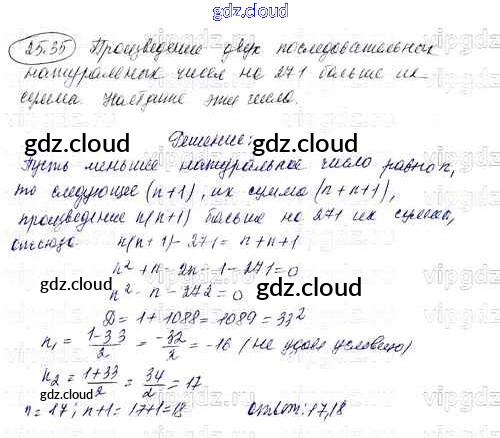 gdz.cloud
25.35 Произведение двух последовательных
натуральных чисел на 271 больше их
суммы. Найдите эти числа.
Решение:
gdz.cloud gdz.cloud
Пусть меньшее натуральное число равно n,
то следующее (n+1), их сумма (n+n+1),
произведение n(n+1) больше на 271 их суммы,
отсюда n(n+1)-271=n+n+1
gdz.cloud gdz.cloud
n²+n-2n-1-271=0
n²-n-272=0
gdz.cloud
D=1+1088=1089=33²
n₁=(1-33)/2=-32/2=-16 (не удов. условию)
n₂=(1+33)/2=34/2=17
gdz.cloud gdz.cloud
n=17; n+1=17+1=18 Ответ: 17,18
gdz.cloud